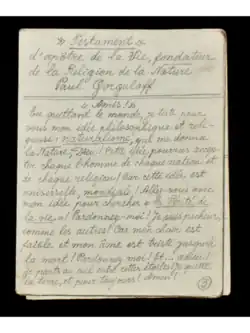 * Testament *
d'apôtre de la Vie, fondateur
de la Religion de la Nature
Paul Gorguloff
* Amis! *
En quittant le monde, je
vous mon idée philosophique et reli-
gieuse: naturalisme, qui me donna
la Nature, Dieu! Cette idée,
chaque l'homme de chaque nation et
de chaque religion! Car cette idée est
universelle, mondiale! Allez-vous avec
mon idée pour chercher * la Vérité de
la vie *! Pardonnez-moi! Je suis pécheur,
comme les autres! Car mon chair est
faible et mon âme est triste jusqu'à
la mort! Pardonnez-moi! Et... adieu!
Je partis au ciel entre étoiles. Je quitte
la terre, et pour toujours! Amen!